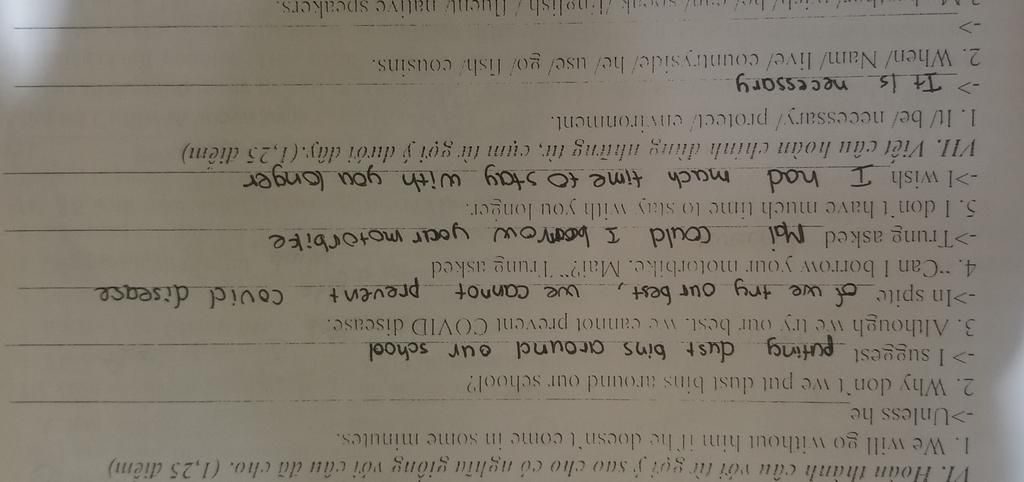 VI. Hoàn thành câu với từ gợi ý sao cho có nghĩa giống với câu đã cho. (1,25 điểm)
1. We will go without him if he doesn't come in some minutes.
->Unless he
2. Why don't we put dust bins around our school?
-> I suggest puting dust bins around our school
3. Although we try our best. we cannot prevent COVID disease.
->In spite of we try our best, we cannot prevent covid disease
4. "Can I borrow your motorbike. Mai?" Trung asked
->Trung asked Mai could I borrow your motorbike
5. I don't have much time to stay with you longer.
->I wish I had much time to stay with you longer
VII. Viết câu hoàn chỉnh dùng những từ, cụm từ gợi ý dưới đây. (1,25 điểm)
1. It/ be/ necessary/ protect/ environment.
-> It is necessary
2. When/ Nam/ live/ countryside/ he/ use/ go/ fish/ cousins.
->
speak/ English/ fluent/ native speakers.